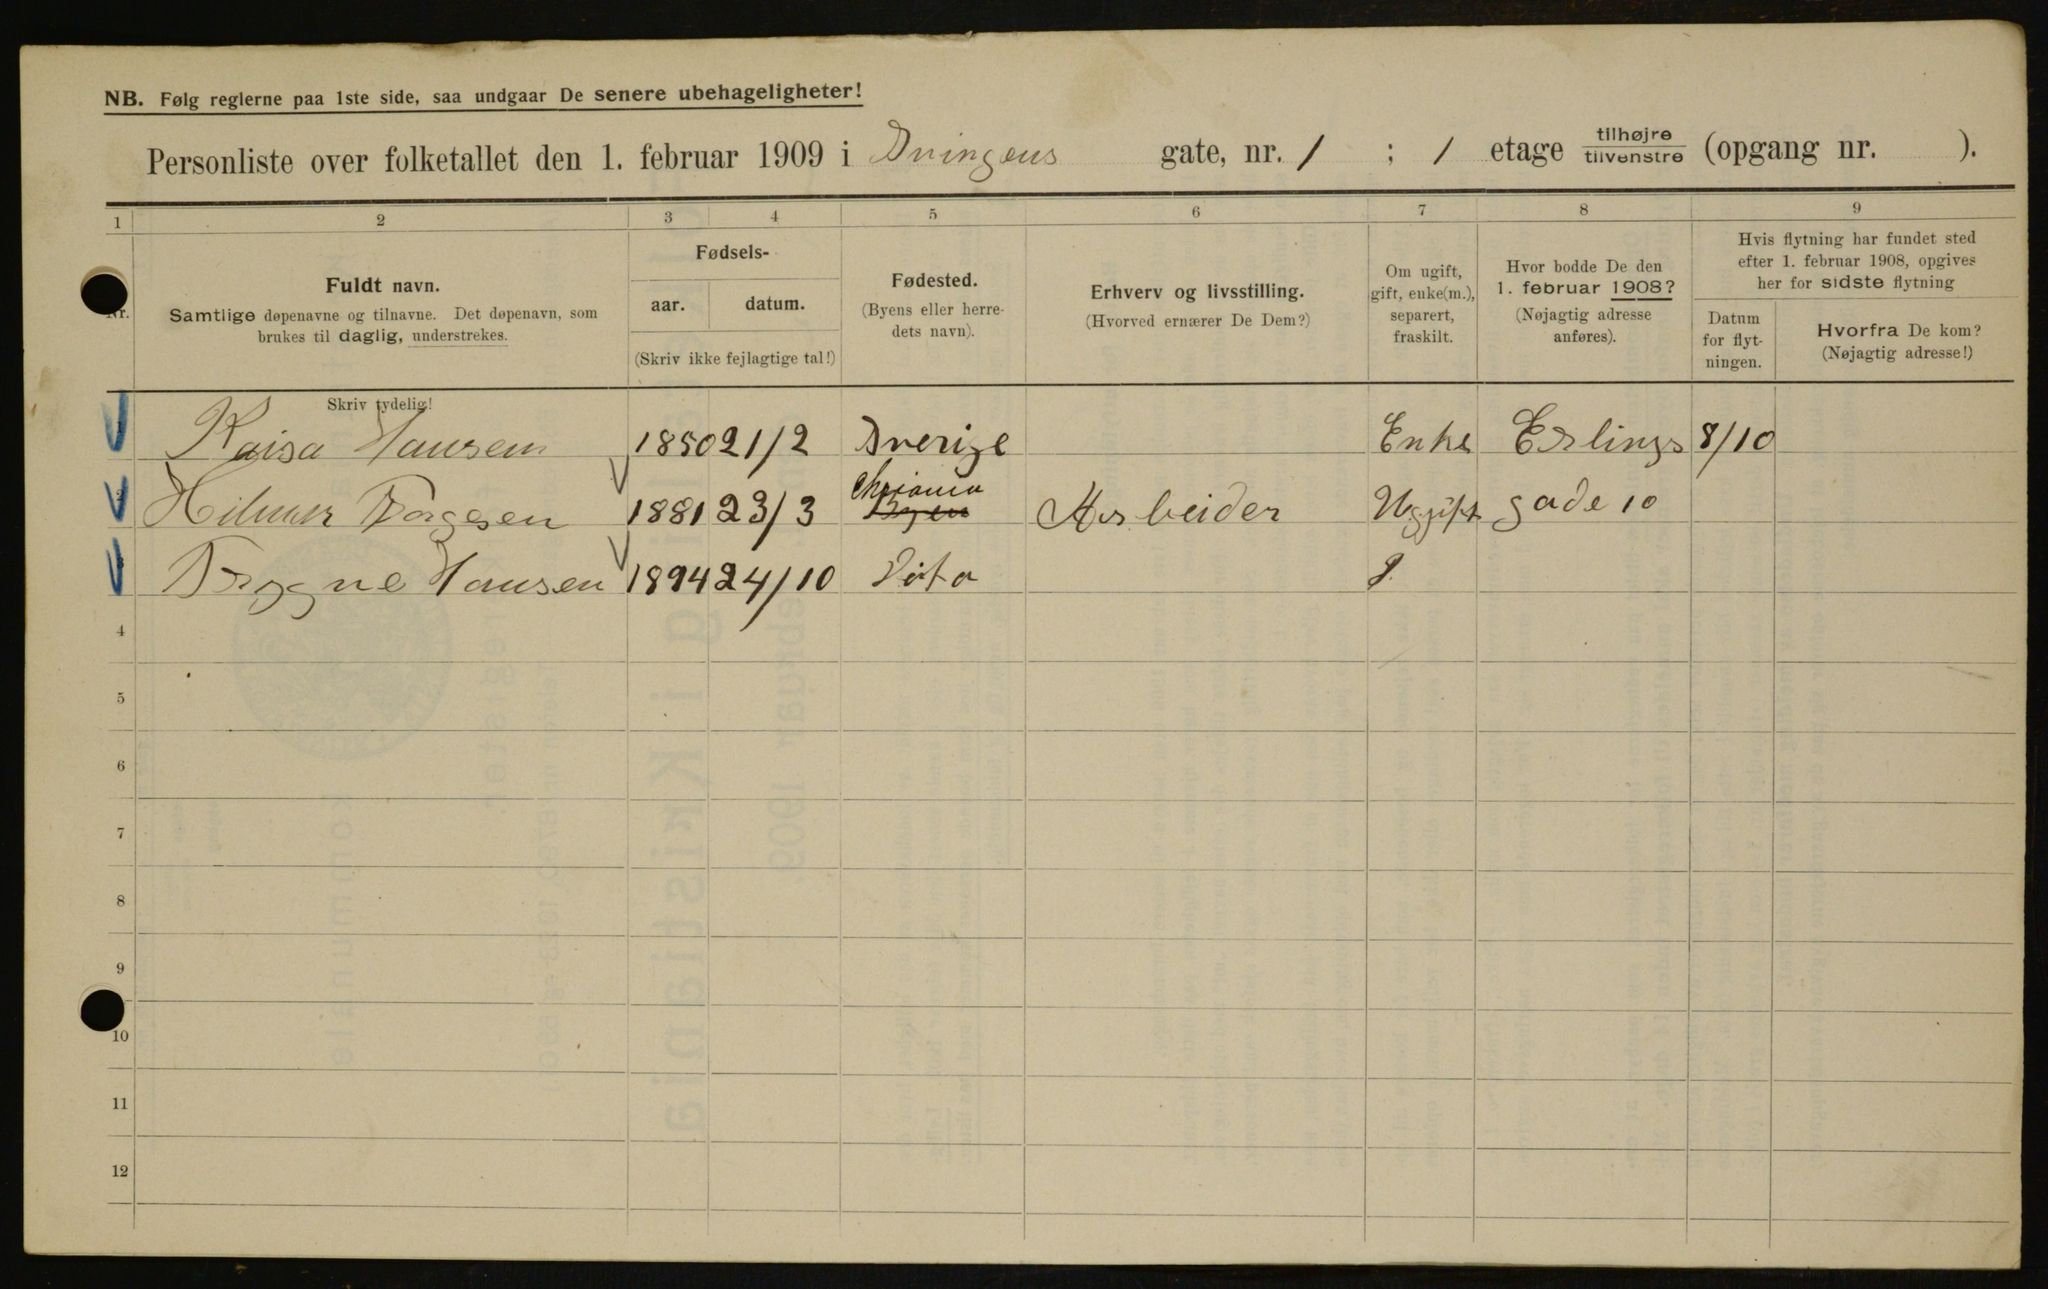 NB. Følg reglerne paa 1ste side, saa undgaar De senere ubehageligheter!
Personliste over folketallet den 1. februar 1909 i Sningens gate, nr. 1 ; 1 etage tilhøjre/tilvenstre (opgang nr. ).
1 2 3 4 5 6 7 8 9
Nr.
Fuldt navn.
Samtlige døpenavne og tilnavne. Det døpenavn, som
brukes til daglig, understrekes.
Skriv tydelig!
Fødsels-
aar. datum.
(Skriv ikke fejlagtige tal!)
Fødested.
(Byens eller herre-
dets navn).
Erhverv og livsstilling.
(Hvorved ernærer De Dem?)
Om ugift,
gift, enke(m.),
separert,
fraskilt.
Hvor bodde De den
1. februar 1908?
(Nøjagtig adresse
anføres).
Hvis flytning har fundet sted
efter 1. februar 1908, opgives
her for sidste flytning
Datum
for flyt-
ningen.
Hvorfra De kom?
(Nøjagtig adresse!)
1 Kaisa Hansen 1850 21/2 Sverige Enke Erlings 8/10
2 Hilmer Torgesen 1881 23/3 Chriania Byen Arbeider Uggift gade 10
3 Trygve Hansen 1894 24/10 Dito
4
5
6
7
8
9
10
11
12